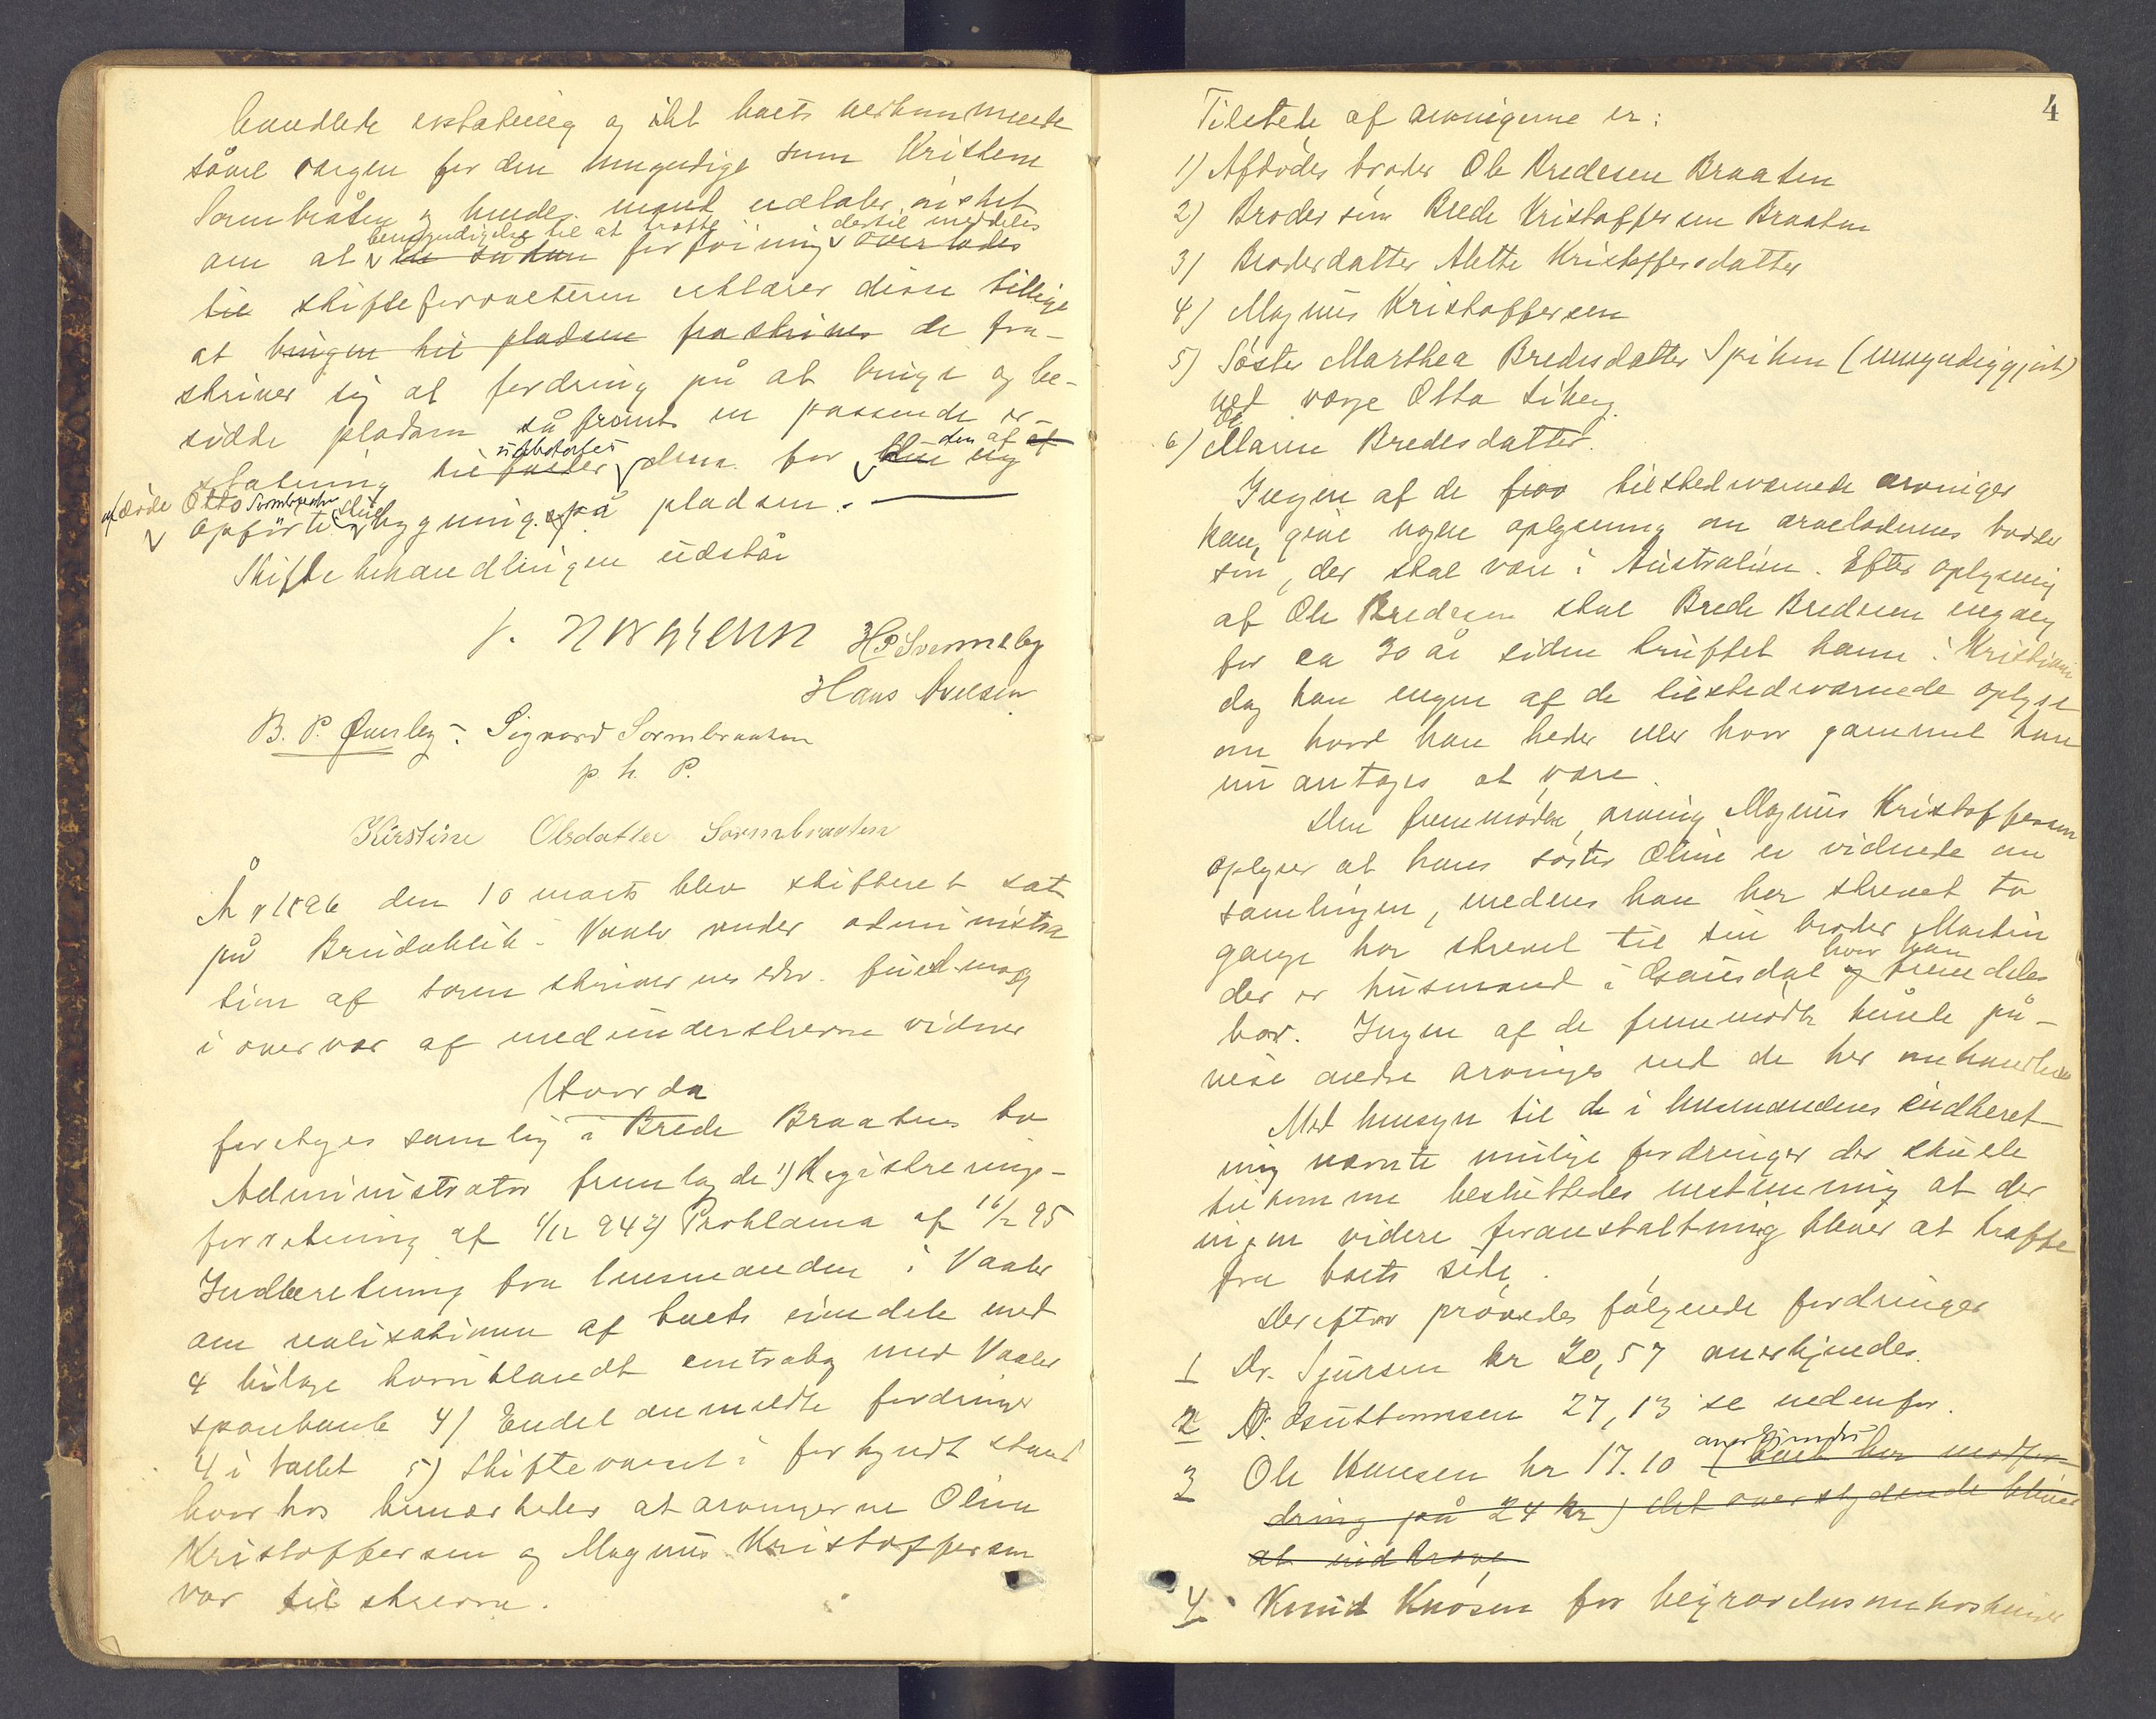 handlede erstatning og idet boets vedkommende
såvel værgen for den umyndige som Kristine
Sormbråten og hendes mand udtaler ønsket
bemyndigelse til at træffe dertil meddeles
om at en sådan forføining overlades
til skifteforvalteren erklærer disse tillige
at brugen til pladsen fraskrives de fra-
skriver sig al fordring på at bruge og be-
sidde pladsen såfremt en passende er-
statning tilfalder udbetales dem for den af
afdøde Otto Sormbraaten
opførte bygning på pladsen.
Skiftebehandlingen udstår
J. Nergrenn H P Svenneby
Hans Axelsen
B. P. Qverby. Sigvard Sormbraaten
p. h. P.
Kirstine Olsdatter Sormbraaten
År 1896 den 10 marts blev skifteret sat
på Brudeblik i Vaaler under administra
tion af sorenskriverens edsv. fuldmægt
i overvær af medunderskrevne vidner
Hvorda
foretoges samling i Brede Braatens bo
Administrator fremlagde 1) Registrerings-
forretning af 4/12 94 2) Proklama af 16/2 95
Indberetning fra lensmanden i Vaaler
om realisationen af boets eiendele med
4 bilage hvoriblandt contrabog med Vaaler
sparebank 4) Endel anmeldte fordringer
4 i tallet 5) Skiftevarsel i forkyndt stand
hvorhos bemærkedes at arvingerne Oline
Kristoffersen og Magnus Kristoffersen
var tilskrevne.
4
Tilstede af arvingerne er:
1) Afdødes broder Ole Bredesen Braaten
2) Brodersøn Brede Kristoffersen Braaten
3) Broderdatter Alette Kristoffersdatter
4) Magnus Kristoffersen
5) Søster Marthea Bredesdatter Spiken (umyndiggjort)
ved værge Otto Siberg.
6) Maren Bredesdatter.
Ingen af de fra tilstedeværende arvinger
kan give nogen oplysning om arveladerens broder
søn, der skal være i Australien. Efter oplysning
af Ole Bredesen skal Brede Bredesen engang
for ca 30 år siden truffet ham i Kristiania
dog kan ingen af de tilstedeværende oplyse
om hvad han heder eller hvor gammel han
nu antages at være.
Den fremmødte arving Magnus Kristoffersen
oplyser at hans søster Oline er vidende om
samlingen, medens han har skrevet to
gange har skrevet til sin broder Martin
der er husmand i Gausdal og hvor han fremdeles
bor. Ingen af de fremmødte kunde på-
vise andre arvinger end de her omhandlede
Med hensyn til de i lensmandens indberet-
ning nævnte mulige fordringer der skulde
tilkomme besluttedes enstemmig at der
ingen videre foranstaltning bliver at træffe
fra boets side.
Derefter prøvedes følgende fordringer
1 Dr. Sjursen kr 20,57 anerkjendes.
2 N. Guttormsen 27,13 se nedenfor.
3 Ole Hansen kr 17.10 anerkjendes (Boet har modfor-
dring på 24 kr) det overskydende bliver
at indkræve
4 Knud Knosen for begravelsesomkostninger